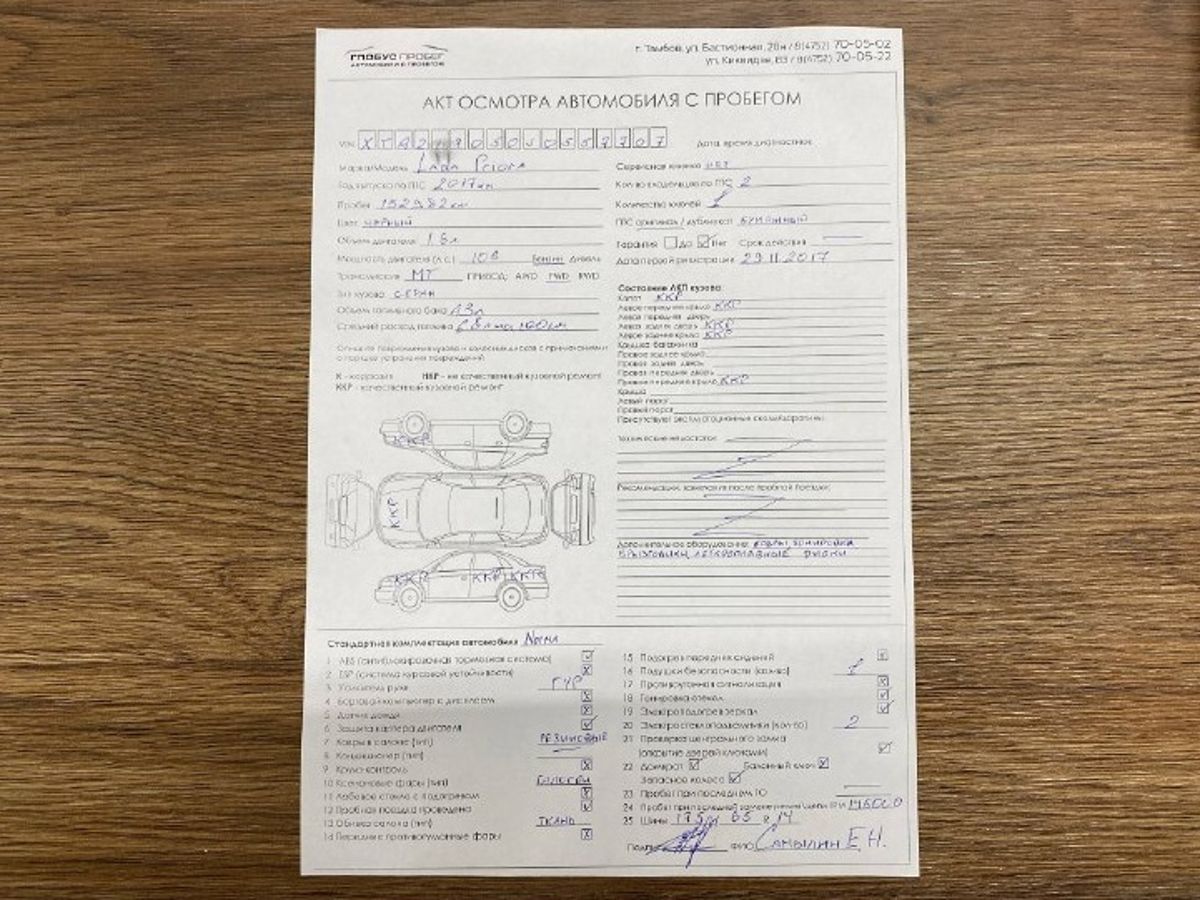 ГЛОБУС ПРОБЕГ
АВТОМОБИЛИ С ПРОБЕГОМ
г. Тамбов, ул. Бастионная, 28и / 8(4752) 70-05-02
ул. Киквидзе, 83 / 8(4752) 70-05-22
АКТ ОСМОТРА АВТОМОБИЛЯ С ПРОБЕГОМ
VIN
Дата, время диагностики:
Марка/Модель Lada Priora
Год выпуска по ПТС 2017
Пробег 152982 км
Цвет ЧЕРНЫЙ
Объем двигателя 1.6л
Мощность двигателя (л.с.) 106 Бензин Дизель
Трансмиссия МТ ПРИВОД: AWD FWD RWD
Тип кузова СЕДАН
Объем топливного бака 43л
Средний расход топлива
Опишите повреждения кузова и колесных дисков с примечаниями
о порядке устранения повреждений
К - коррозия НКР - не качественный кузовной ремонт
ККР - качественный кузовной ремонт
Сервисная книжка НЕТ
Кол-во владельцев по ПТС 2
Количество ключей 1
ПТС оригинал / дубликат БУМАЖНЫЙ
Гарантия Да Нет Срок действия
Дата первой регистрации 29.11.2017
Состояние ЛКП кузова:
Капот ККР
Левое переднее крыло ККР
Левая передняя дверь
Левая задняя дверь ККР
Левое заднее крыло ККР
Крышка багажника
Правое заднее крыло
Правая задняя дверь
Правая передняя дверь
Правое переднее крыло ККР
Крыша
Левый порог
Правый порог
Присутствуют эксплуатационные сколы/царапины
Технические недостатки:
Рекомендации, замечания после пробной поездки:
Дополнительное оборудование: КОВРЫ, ТОНИРОВКА
БРЫЗГОВИКИ, ЛЕГКОСПЛАВНЫЕ ДИСКИ
ККР
ККР
ККР ККР ККР
Стандартная комплектация автомобиля Norma
1 ABS (антиблокировочная тормозная система)
2 ESP (система курсовой устойчивости)
3 Усилитель руля ГУР
4 Бортовой компьютер с дисплеем
5 Датчик дождя
6 Защита картера двигателя
7 Ковры в салоне (тип) РЕЗИНОВЫЕ
8 Кондиционер (тип)
9 Круиз-контроль
10 Ксеноновые фары (тип) ГАЛОГЕН
11 Лобовое стекло с подогревом
12 Пробная поездка проведена
13 Обивка салона (тип) ТКАНЬ
14 Передние противотуманные фары
15 Подогрев передних сидений
16 Подушки безопасности (кол-во) 1
17 Противоугонная сигнализация
18 Тонировка стекол
19 Электроподогрев зеркал
20 Электростеклоподъемники (кол-во) 2
21 Проверка центрального замка
(открытие дверей ключами)
22 Домкрат Балонный ключ
Запасное колесо
23 Пробег при последнем ТО
24 Пробег при последней замене ремня/цепи ГРМ
25 Шины 175 / 65 R 14
Подпись ФИО Самылин Е.Н.